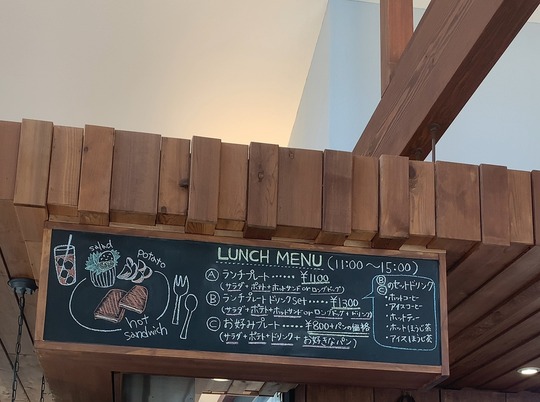 LUNCH MENU (11:00〜15:00)
Ⓐ ランチプレート……¥1100
(サラダ+ポテト+ホットサンド or ロングドッグ)
Ⓑ ランチプレートドリンクset…¥1300
(サラダ+ポテト+ホットサンド or ロングドッグ+ドリンク)
Ⓒ お好みプレート……¥800+パンの価格
(サラダ+ポテト+ドリンク+お好きなパン)
Ⓑ
Ⓒ のセットドリンク
・ホットコーヒー
・アイスコーヒー
・ホットティー
・ホットほうじ茶
・アイスほうじ茶
salad
potato
hot
sandwich